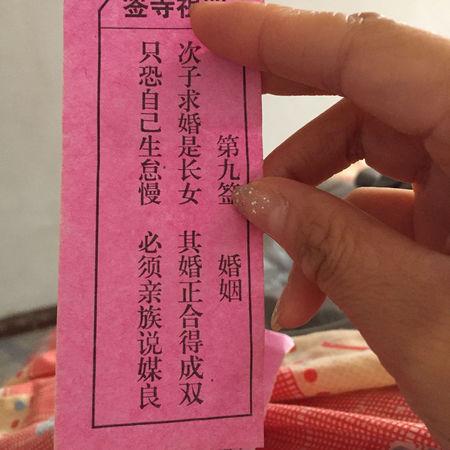 祖寺签
第九签 婚姻
次子求婚是长女 其婚正合得成双
只恐自己生怠慢 必须亲族说媒良